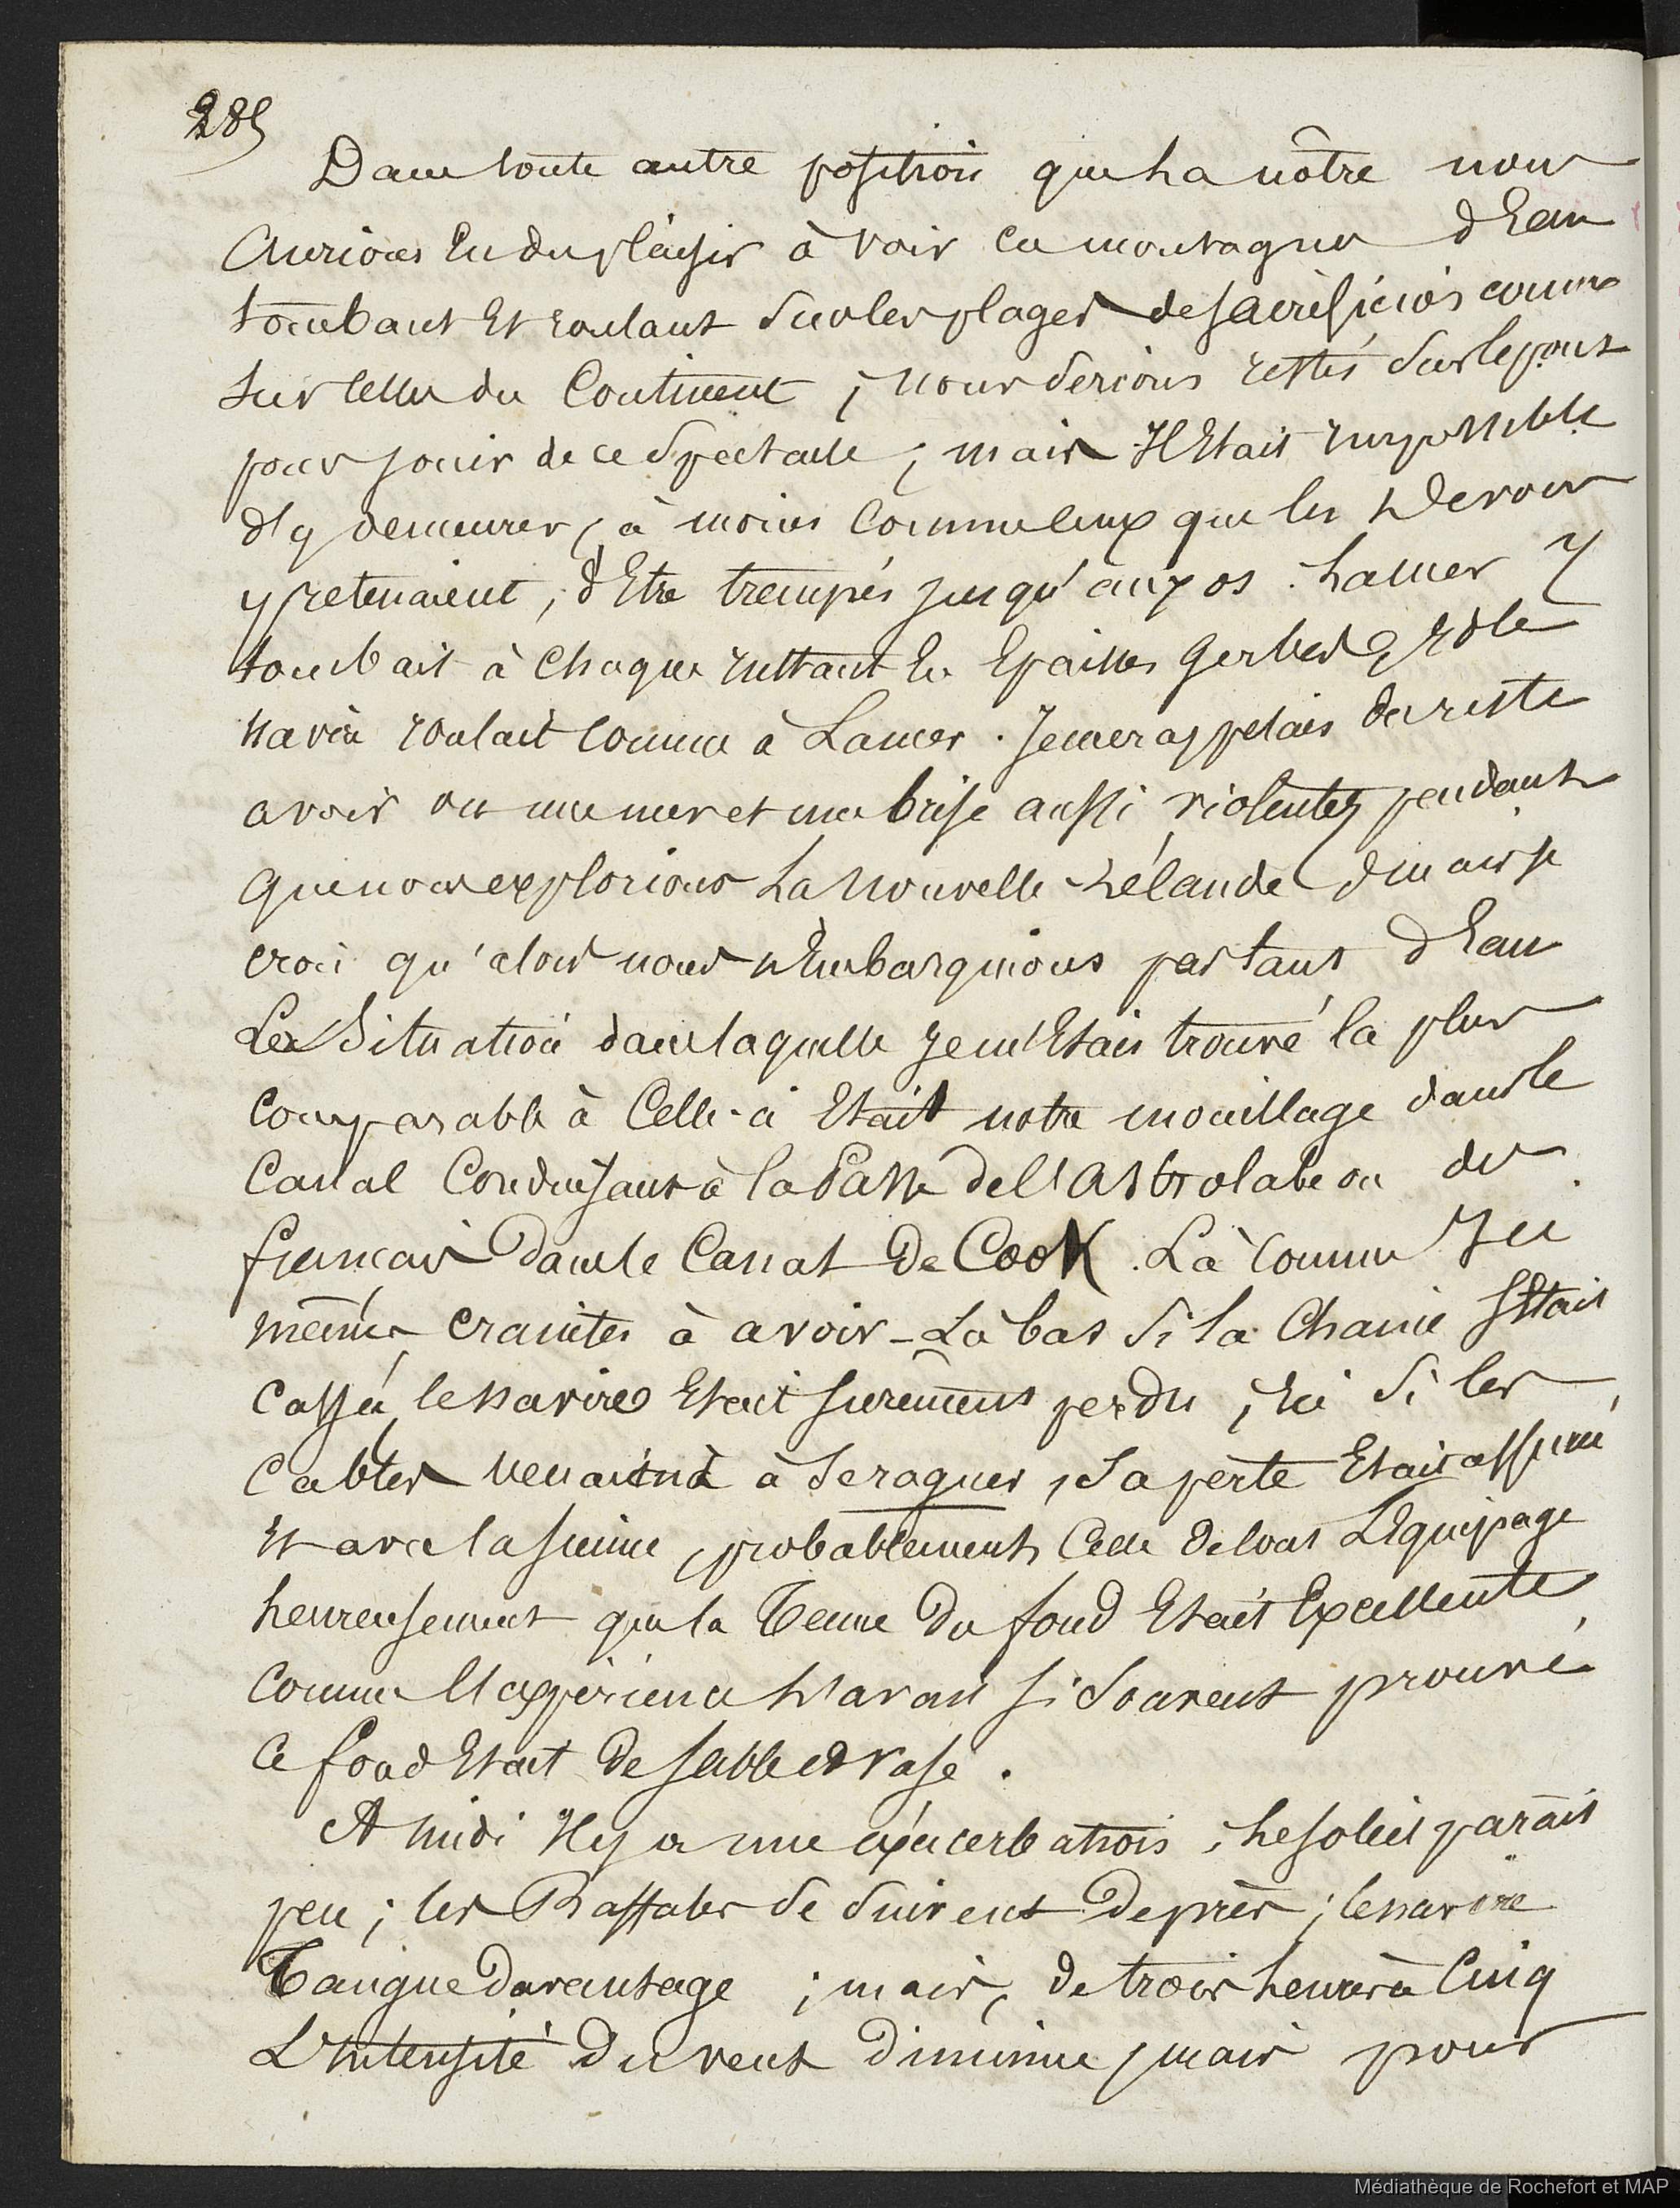 285
Dans toute autre position que La nôtre nous
Aurions Eu du plaisir à voir ces montagnes d'Eau
tombant Et roulant sur les plages de sacrificios comme
sur celles du Continent ; nous serions restés sur le pont
pour jouir de ce spectacle ; mais Il Etait Impossible
d'y demeurer, à moins comme ceux que les Devoirs
y retenaient, d'Etre trempés jusqu'aux os. La mer y
tombait à chaque Instant En Epaisses Gerbes & Et le
navire roulait comme à La mer. Je me rappelais de reste
avoir vu une mer et une brise aussi violentes pendant
que nous explorions La Nouvelle-Zélande & mais je
crois qu'alors nous n'Embarquions pas tant d'Eau
La Situation dans laquelle je m'Etais trouvé la plus
comparable à Celle-ci Etait notre mouillage dans le
Canal Conduisant à la Passe de l'Astrolabe ou des
français Dans le Canal de Cook. Là comme Ici
mêmes craintes à avoir - Là bas si la Chaine s'Etait
cassée, le navire Etait surement perdu ; Ici si les
cables venaient à se raguer, sa perte Etait assurée
Et avec la sienne, probablement Celle de tout L'Equipage
heureusement que la Tenue Du fond Etait Excellente
comme l'expérience l'avait si souvent prouvé
Ce fond Etait De sable et vase.
A midi Il y a une exacerbation ; Le soleil parait
peu ; les Raffales se suivent De près ; le navire
Tangue Davantage ; mais, de trois heures à Cinq
L'Intensité Du vent Diminue ; mais pour
Médiathèque de Rochefort et MAP